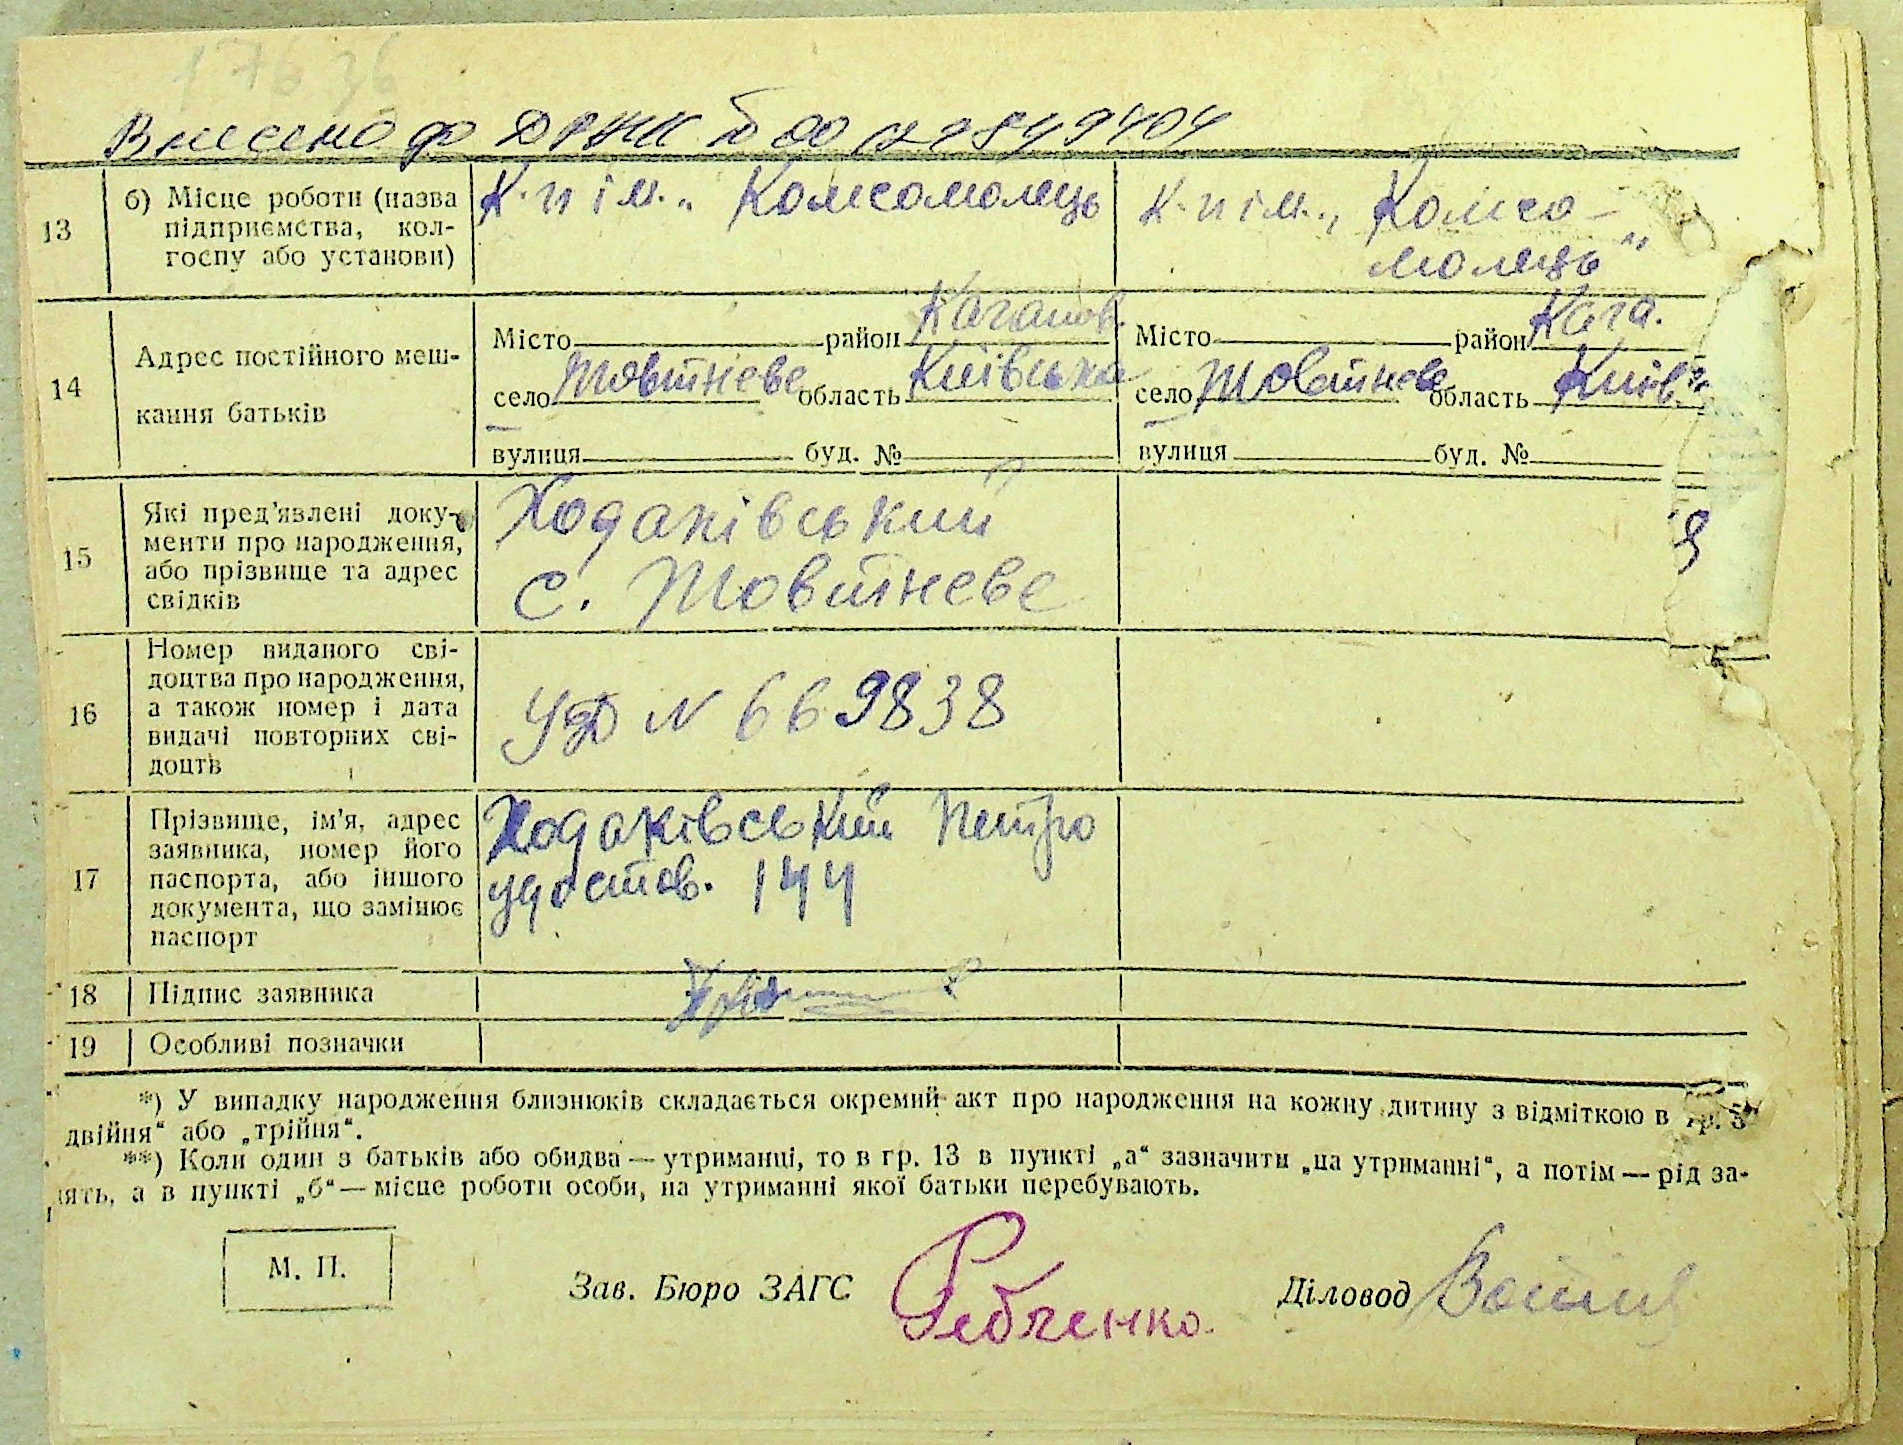 17636
Внесено до ДРАЦС № 00
13
б) Місце роботи (назва
підприємства, кол-
госпу або установи)
К-п ім. „ Комсомолець
К-п ім. „ Комсо-
молець"
14
Адрес постійного меш-
кання батьків
Місто район Каганов.
село Жовтневе область Київська
вулиця буд. №
Місто район Кага.
село Жовтневе область Київ.
вулиця буд. №
15
Які пред'явлені доку-
менти про народження,
або прізвище та адрес
свідків
Ходаківський
с. Жовтневе
16
Номер виданого сві-
доцтва про народження,
а також номер і дата
видачі повторних сві-
доцтв
N 669838
17
Прізвище, ім'я, адрес
заявника, номер його
паспорта, або іншого
документа, що замінює
паспорт
Ходаківський Петро
удостов. 144
18
Підпис заявника
19
Особливі позначки
*) У випадку народження близнюків складається окремий акт про народження на кожну дитину з відміткою в гр. 3
двійня“ або „трійня“.
**) Коли один з батьків або обидва — утриманці, то в гр. 13 в пункті „а“ зазначити „на утриманні“, а потім — рід за-
нять, а в пункті „б“ — місце роботи особи, на утриманні якої батьки перебувають.
М. П.
Зав. Бюро ЗАГС
Діловод